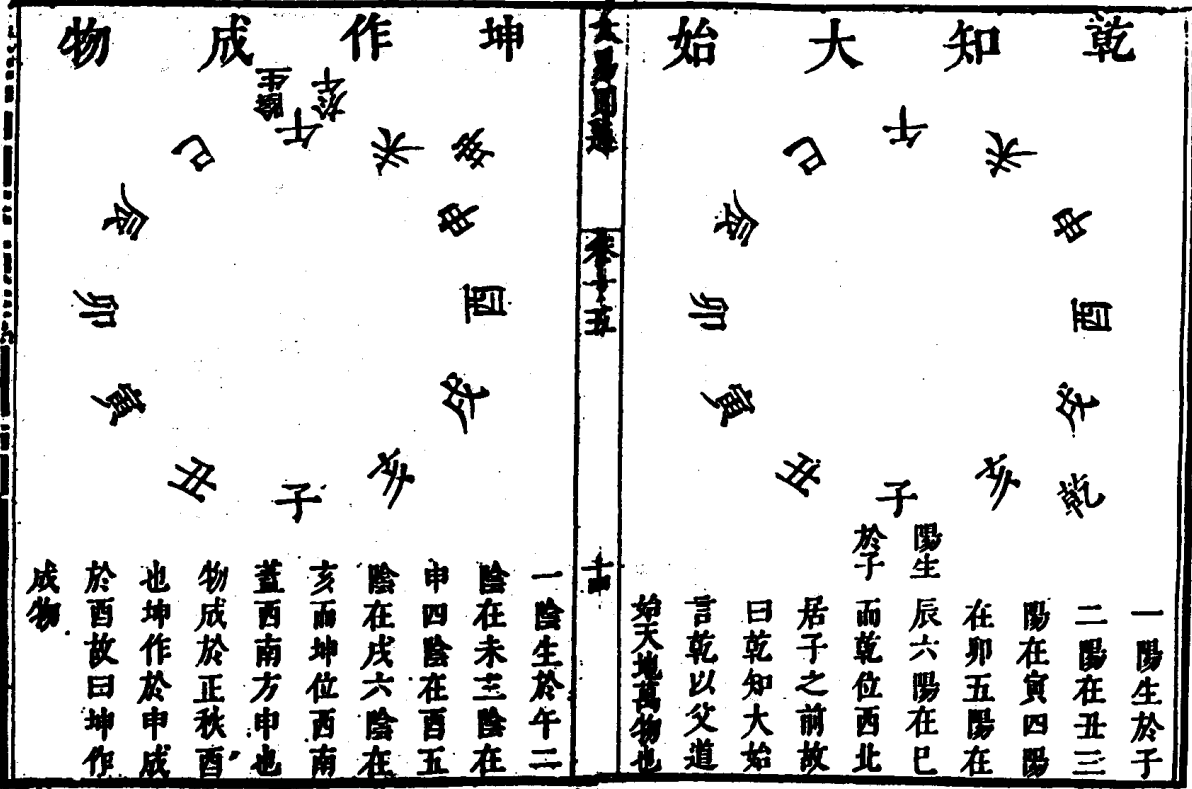 乾知大始
午
未
申
酉
戌
乾
亥
子
丑
寅
卯
辰
巳
陽生
於子
一陽生於子
二陽在丑三
陽在寅四陽
在卯五陽在
辰六陽在巳
而乾位西北
居子之前故
曰乾知大始
言乾以父道
始天地萬物也
大易則通
卷十五
十四
坤作成物
陰生
於午
午
未
坤
申
酉
戌
亥
子
丑
寅
卯
辰
巳
一陰生於午二
陰在未三陰在
申四陰在酉五
陰在戌六陰在
亥而坤位西南
蓋西南方申也
物成於正秋酉
也坤作於申成
於酉故曰坤作
成物